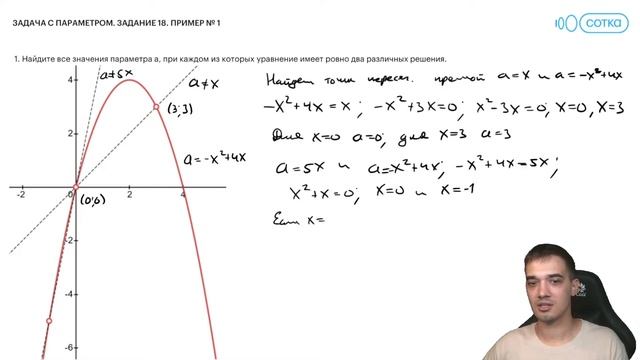 ЗАДАЧА С ПАРАМЕТРОМ. ЗАДАНИЕ 18. ПРИМЕР № 1
сотка
1. Найдите все значения параметра a, при каждом из которых уравнение имеет ровно два различных решения.
a≠5x
a≠x
(3;3)
a=-x²+4x
(0;0)
4
2
-2
2
4
-2
-4
-6
Найдем точки пересеч. прямой a=x и a=-x²+4x
-x²+4x=x; -x²+3x=0; x²-3x=0; x=0, x=3
Для x=0 a=0; для x=3 a=3
a=5x и a=-x²+4x; -x²+4x=5x;
x²+x=0; x=0 и x=-1
Если x=